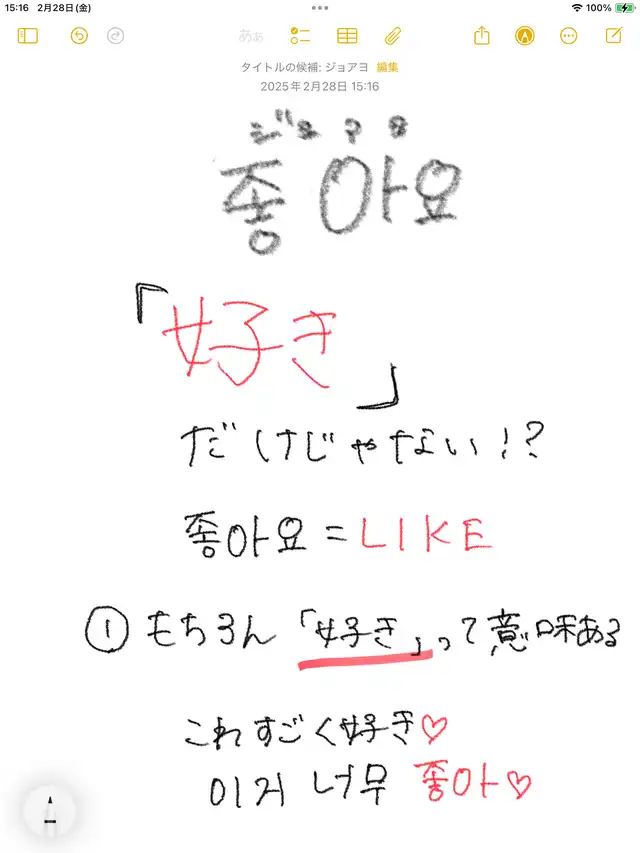 15:16 2月28日(金) 100%
あぁ
タイトルの候補: ジョアヨ 編集
2025年2月28日 15:16
ジョ ア ヨ
좋아요
「好き」
だけじゃない!?
좋아요 = LIKE
① もちろん「好き」って意味ある
これすごく好き♡
이거 너무 좋아♡